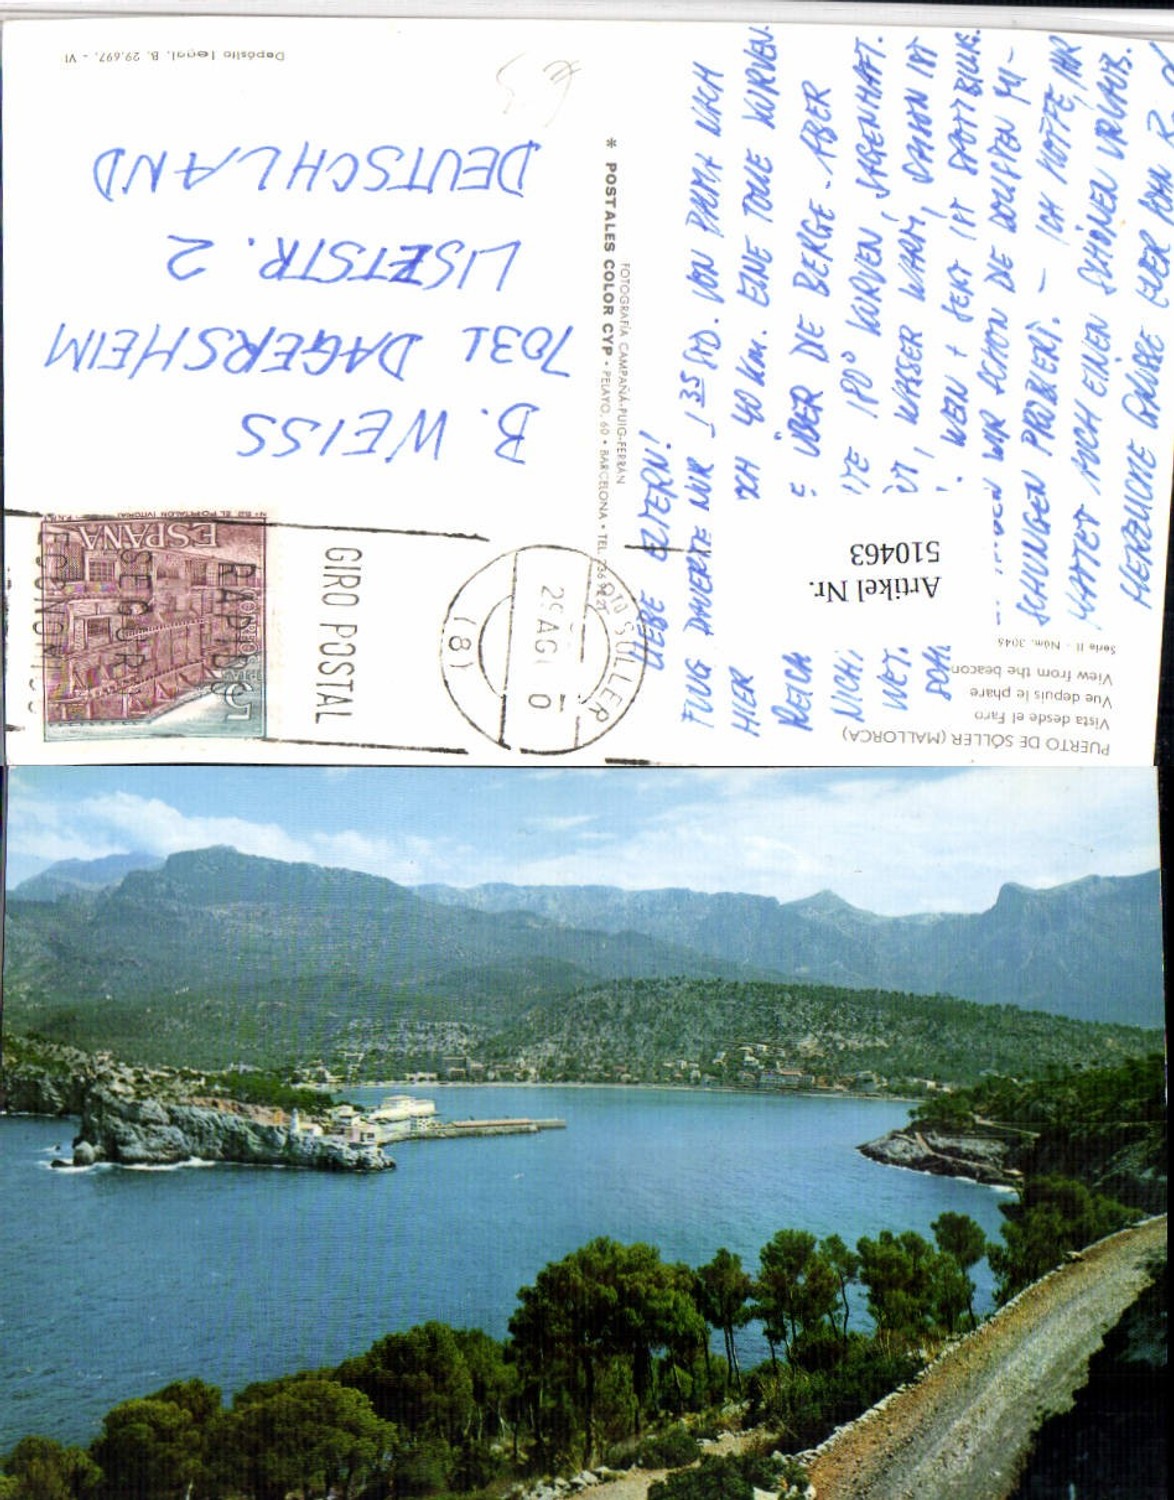 PUERTO DE SÓLLER (MALLORCA)
Vista desde el Faro
Vue depuis le phare
View from the beacon
Serie II - Núm. 3045
Artikel Nr.
510463
LIEBE ELTERN!
FLUG DAUERTE NUR 1 35 STD. VON PALMA NACH
HIER 40 KM. EINE TOLLE KURVEN-
REICH ÜBER DIE BERGE. ABER
NICHT 180° KURVEN, SAGENHAFT.
WET. WASSER WARM, SCHON IST
WEIN + SEKT IST SPOTTBILLIG.
WIR SCHON DIE DOLLSTEN MI-
SCHUNGEN PROBIERT. - ICH HOFFE, IHR
HATTET AUCH EINEN SCHÖNEN URLAUB.
HERZLICHE GRÜSSE EUER
FOTOGRAFÍA CAMPAÑÁ-PUIG-FERRÁN
* POSTALES COLOR CYP • PELAYO, 60 • BARCELONA • TEL.
GIRO POSTAL
RAPIDO
SEGURO
ECONOMI
SOLLER
29 AG
(8)
ESPAÑA
CORREOS
5
Nº 82 EL PORTALON (VITORIA)
B. WEISS
7031 DAGERSHEIM
LISZTSTR. 2
DEUTSCHLAND
Depósito Legal. B. 29.697. - VI